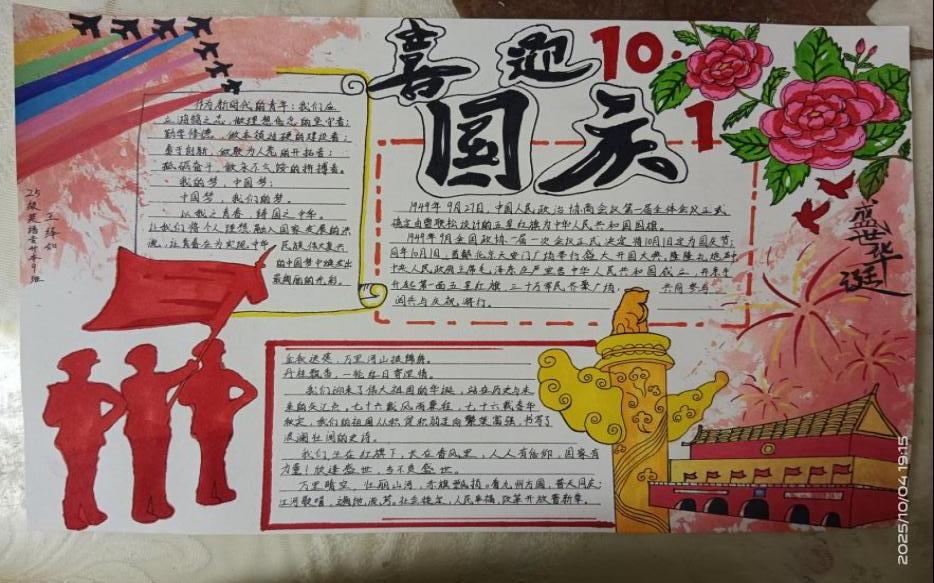 喜迎
国庆
10.1
盛世华诞
作为新时代的青年：我们应
立鸿鹄之志，做理想信念的坚守者；
勤学修德，做本领过硬的建设者；
勇于创新，做敢为人先的开拓者；
砥砺奋斗，做永不气馁的拼搏者。
我的梦，中国梦；
中国梦，我们的梦。
以我之青春，铸国之中华。
让我们将个人理想融入国家发展的洪
流，让青春在为实现中华 民族伟大复兴
的中国梦中焕发出
最绚丽的光彩。
1949年9月27日，中国人民政治协商会议第一届全体会议正式
确定由曾联松设计的五星红旗为中华人民共和国国旗。
1949年9月全国政协一届一次会议正式决定将10月1日定为国庆节；
同年10月1日，首都北京天安门广场举行盛大开国大典，隆隆礼炮中
中央人民政府主席毛泽东庄严宣告中华人民共和国成立，并亲手
升起第一面五星红旗，三十万军民齐聚广场， 共同参与
阅兵与庆祝游行。
金秋送爽，万里河山披锦绣。
丹桂飘香，一轮
我们迎来了伟大祖国的华诞，站在历史与未
来的交汇点，七十六载风雨兼程，七十六载春华
秋实，我们的祖国从积贫积弱走向繁荣富强，书写了
波澜壮阔的史诗。
我们生在红旗下，长在春风里，人人有信仰，国家有
力量！欣逢盛世，当不负盛世。
万里晴空，壮丽山河，赤旗飘扬。看九州方圆，普天同庆；
江河歌唱，遍地流芳。社会稳定，人民幸福，改革开放谱新章。
2025/10/04 19:15